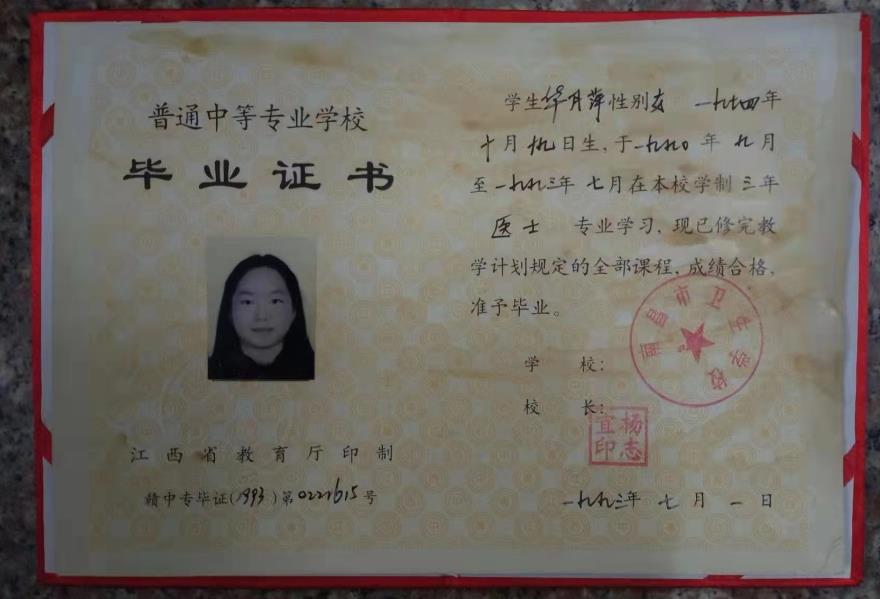 普通中等专业学校
毕业证书
江西省教育厅印制
赣中专毕证(1993)第0221615号
学生华月萍性别女 一九七四年
十月九日生,于一九九〇年九月
至一九九三年七月在本校学制三年
医士 专业学习,现已修完教
学计划规定的全部课程,成绩合格,
准予毕业。
南昌市卫生学校
学校:
校长:
杨志宜印
一九九三年七月一日